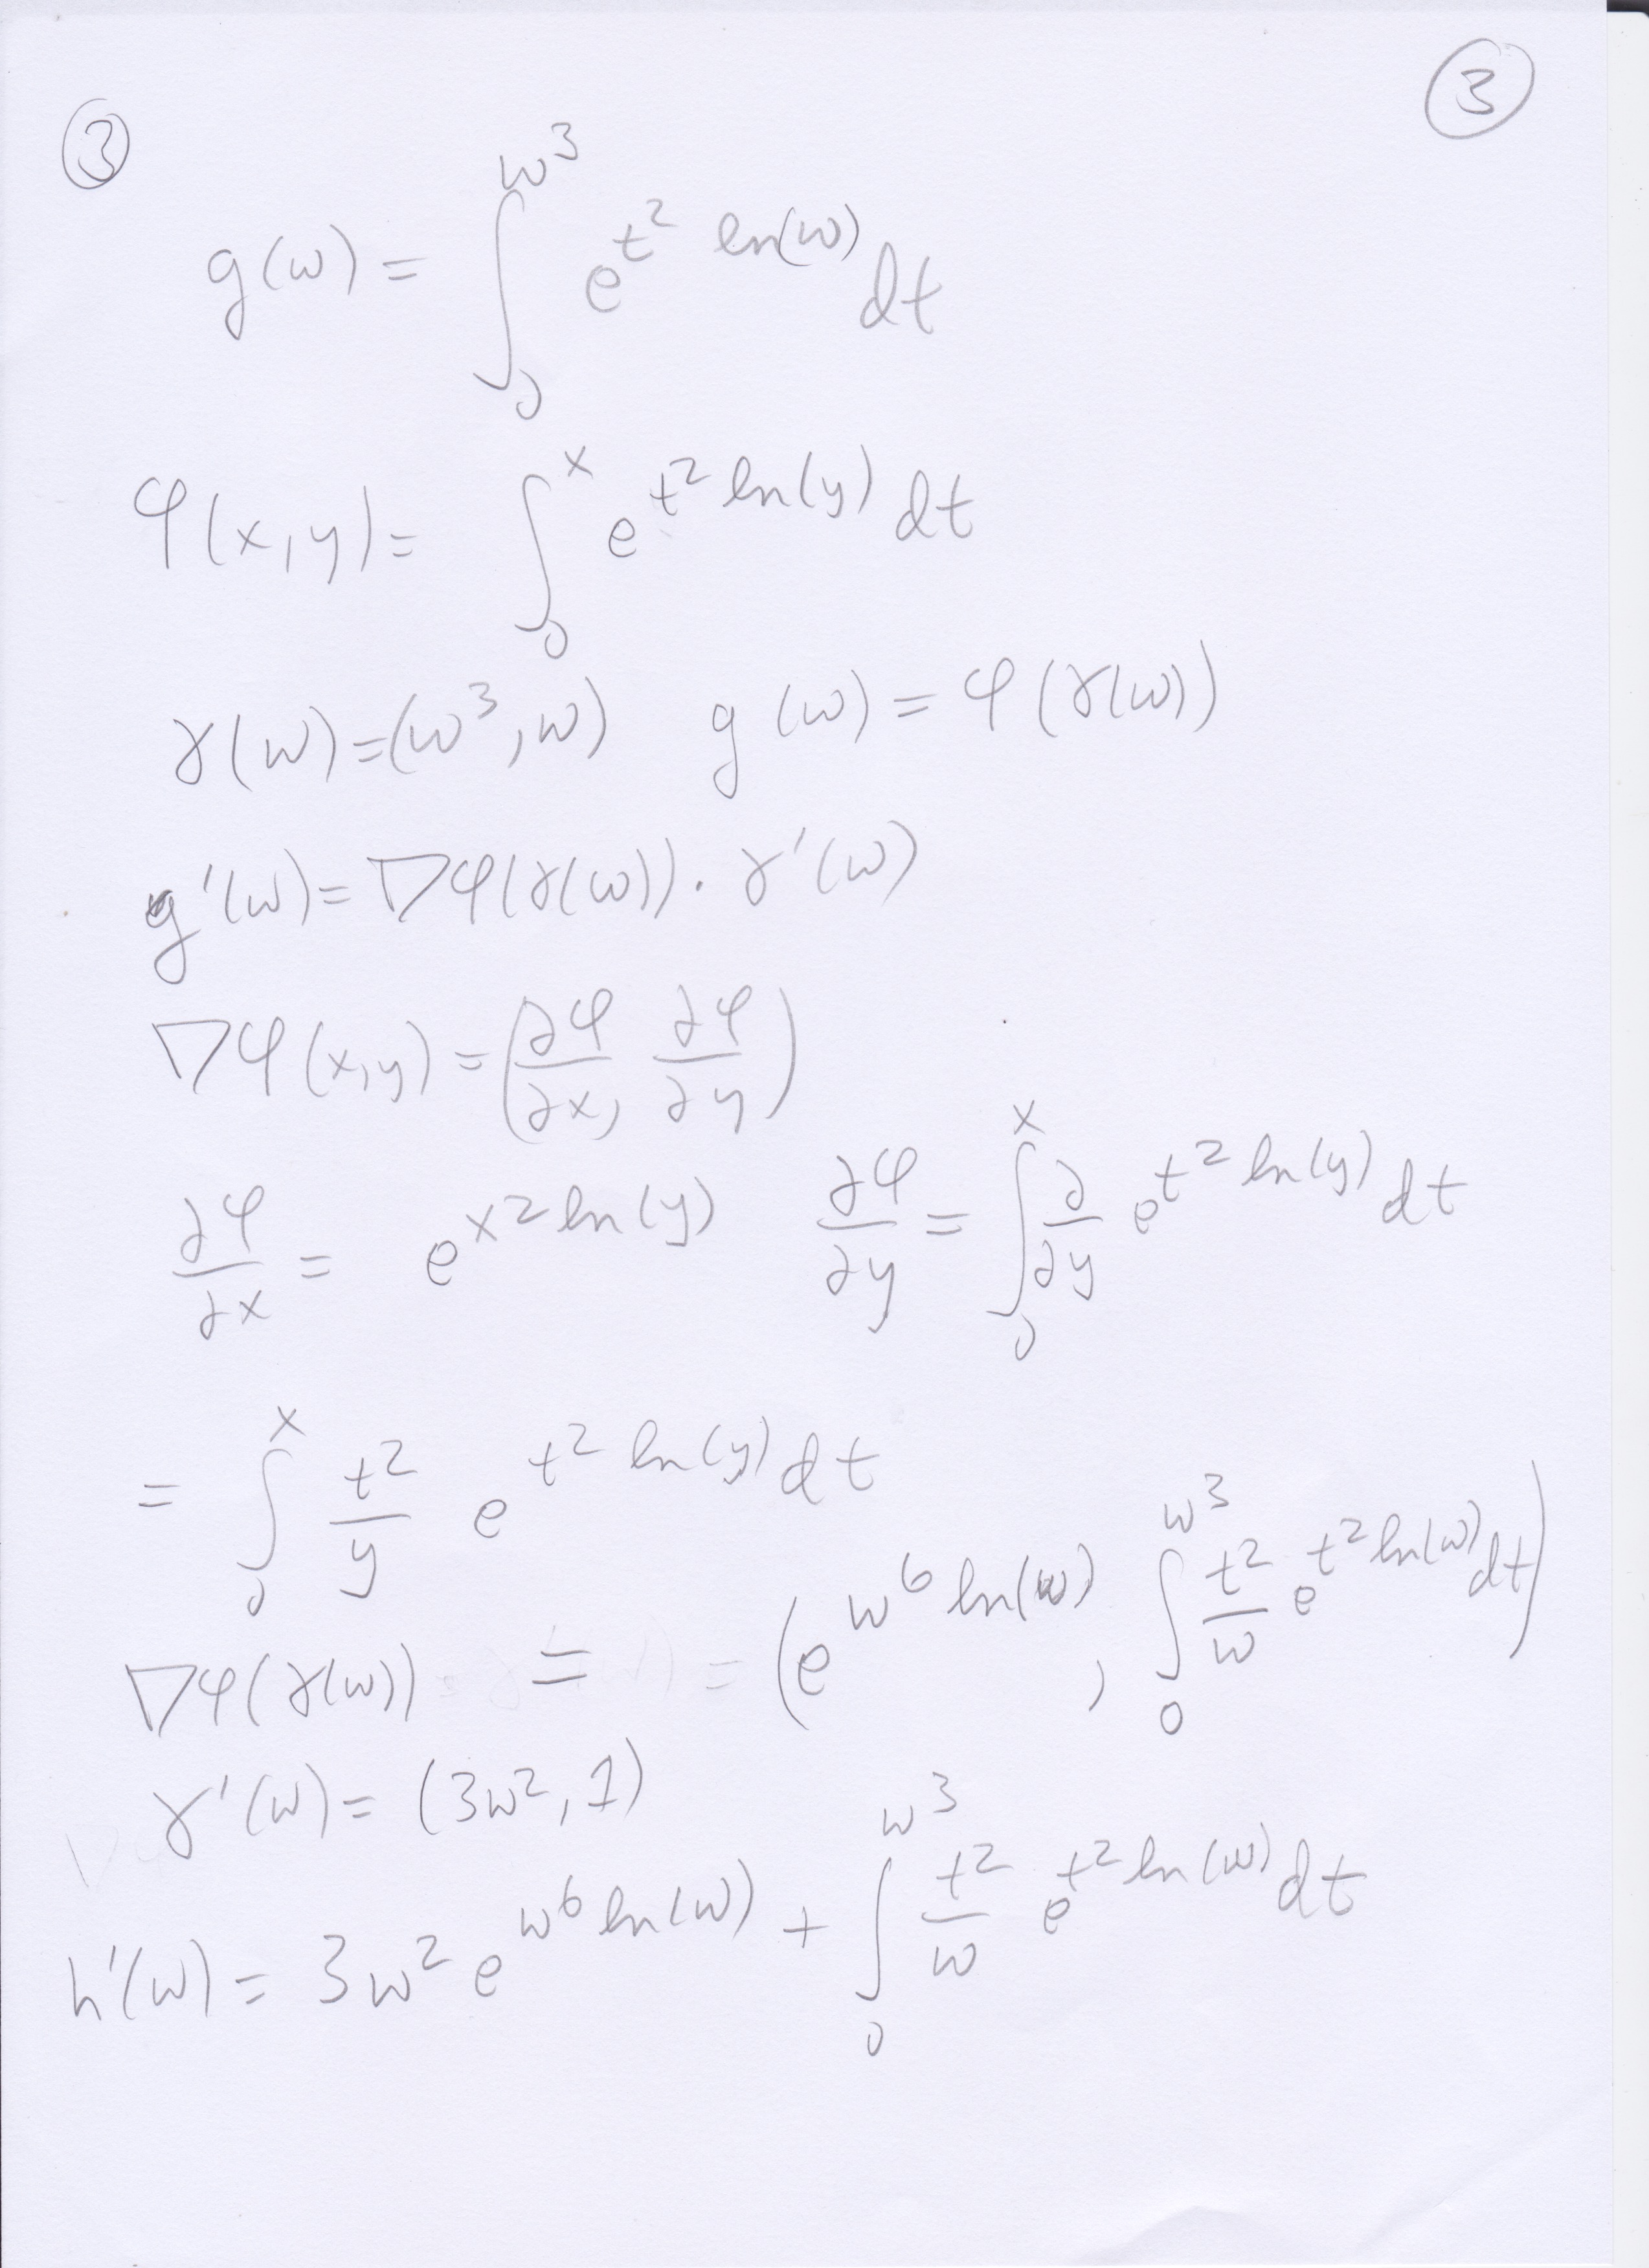 ③ ③
g(w) = ∫₀^{w³} e^{t² ln(w)} dt
φ(x,y) = ∫₀^{x} e^{t² ln(y)} dt
γ(w) = (w³, w) g(w) = φ(γ(w))
g'(w) = ∇φ(γ(w)) · γ'(w)
∇φ(x,y) = (∂φ/∂x, ∂φ/∂y)
∂φ/∂x = e^{x² ln(y)} ∂φ/∂y = ∫₀^{x} ∂/∂y e^{t² ln(y)} dt
= ∫₀^{x} t²/y e^{t² ln(y)} dt
∇φ(γ(w)) = = (e^{w⁶ ln(w)}, ∫₀^{w³} t²/w e^{t² ln(w)} dt)
γ'(w) = (3w², 1)
h'(w) = 3w² e^{w⁶ ln(w)} + ∫₀^{w³} t²/w e^{t² ln(w)} dt